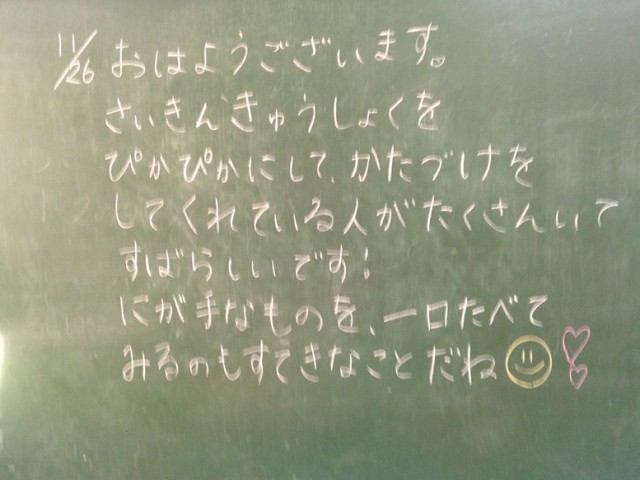 11/26 おはようございます。
さいきんきゅうしょくを
ぴかぴかにして、かたづけを
してくれている人がたくさんいて
すばらしいです!
にが手なものを、一口たべて
みるのもすてきなことだね